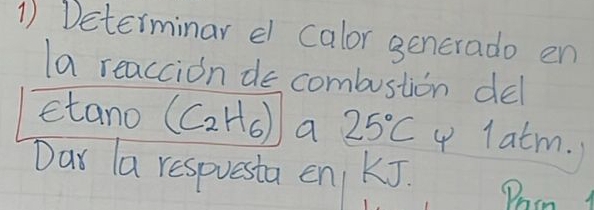 1) Determinar el calor generado en
la reacción de combustión del
etano (C₂H₆) a 25°C y 1atm.
Dar la respuesta en KJ.